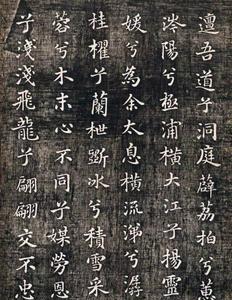 邅吾道兮洞庭薜荔拍兮蕙
涔陽兮極浦橫大江兮揚靈
媛兮為余太息橫流涕兮潺
桂櫂兮蘭枻斲冰兮積雪采
蓉兮木末心不同兮媒勞恩
兮淺淺飛龍兮翩翩交不忠